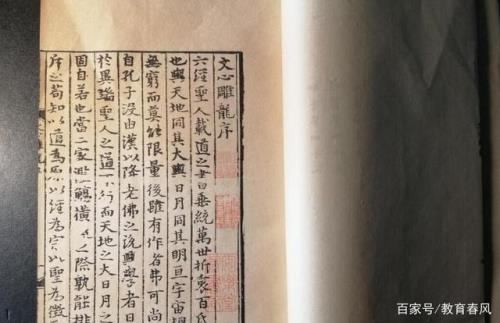 文心雕龍序
六經聖人載道之書垂統萬世折衷百氏
也與天地同其大與日月同其明亘宇宙
無窮而莫能限量後雖有作者弗可尚
自孔子沒由漢以降老佛之說興學者日
於異端聖人之道不行而天地之大日月之
固自若也當二家濫觴橫流之際孰能排
斥之苟知以道為原以經為宗以聖為徵
百家号/教育春风